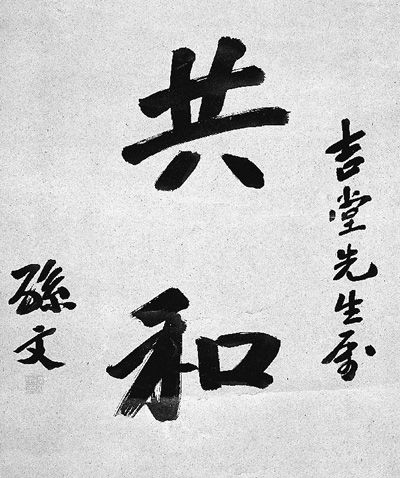 吉堂先生属
共和
孫文